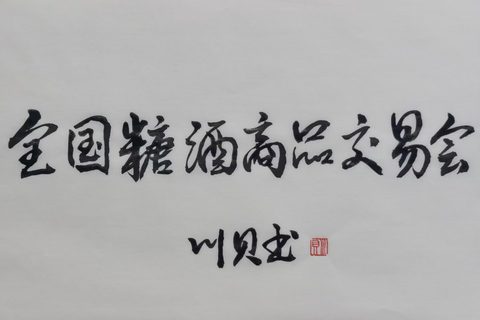 全国糖酒商品交易会
川贝书